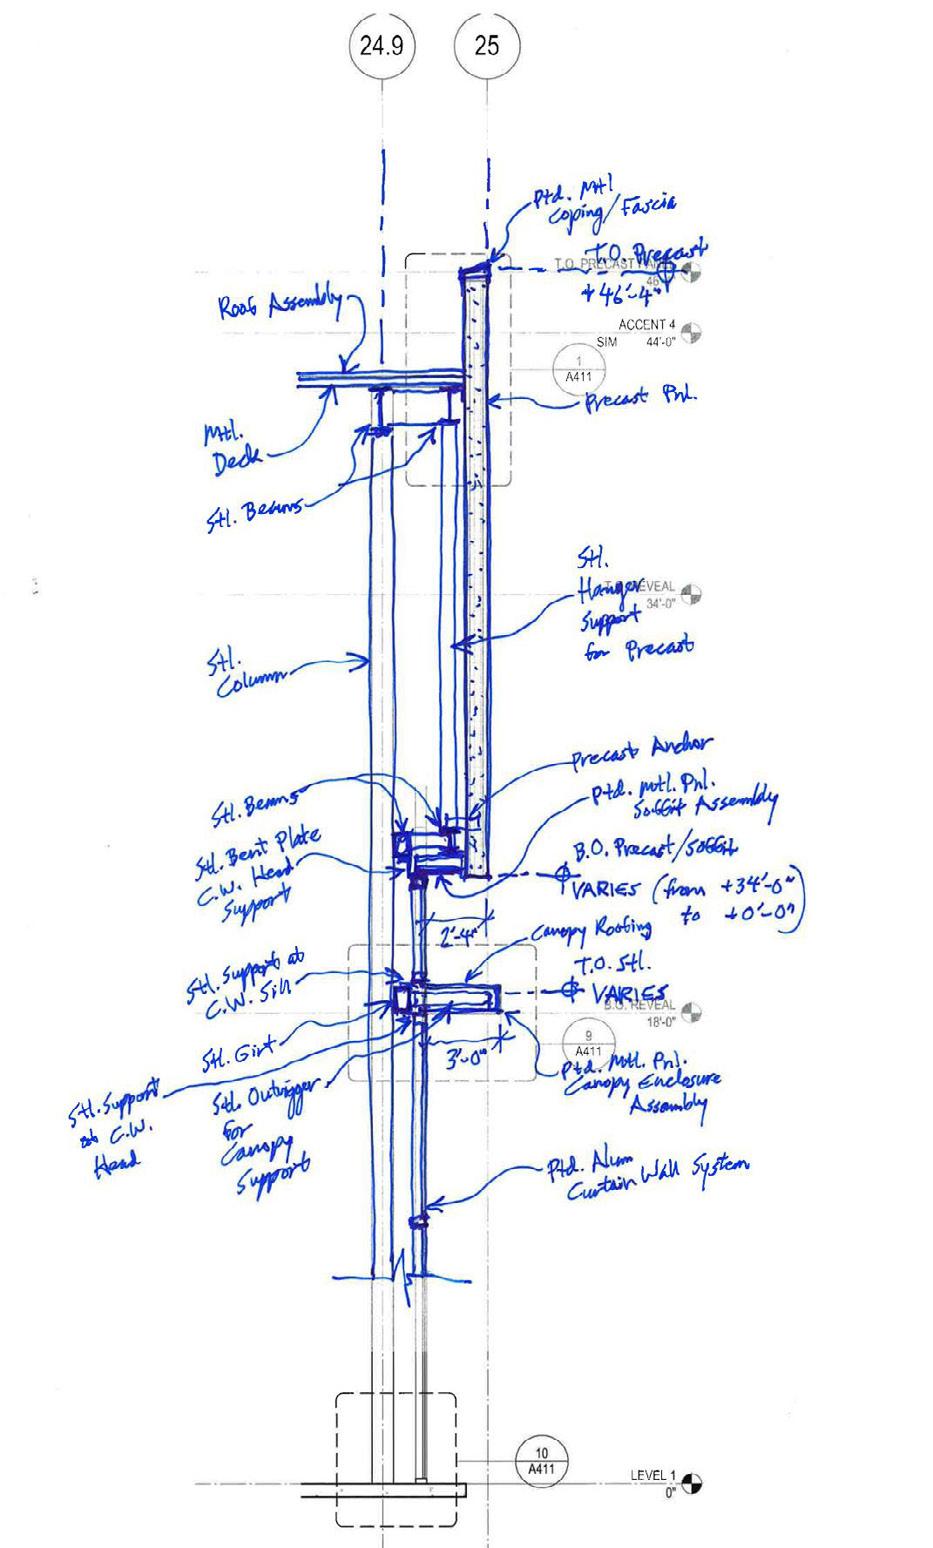 24.9
25
Ptd. Mtl
Coping/Fascia
T.O. Precast
+46'-4"
T.O. PRECAST PANEL
46'
Roof Assembly
ACCENT 4
SIM 44'-0"
1
A411
Precast Pnl.
Mtl.
Deck
Stl. Beams
Stl.
Hanger
Support
for Precast
T.O. REVEAL
34'-0"
Stl.
Column
Precast Anchor
Ptd. Mtl. Pnl.
Soffit Assembly
Stl. Beams
Stl. Bent Plate
C.W. Head
Support
B.O. Precast/Soffit
VARIES (from +34'-0"
to +0'-0")
2'-4"
Canopy Roofing
Stl. Support at
C.W. Sill
T.O. Stl.
VARIES
B.O. REVEAL
18'-0"
9
A411
Stl. Girt
3'-0"
Ptd. Mtl. Pnl.
Canopy Enclosure
Assembly
Stl. Support
at C.W.
Head
Stl. Outrigger
for
Canopy
Support
Ptd. Alum
Curtain Wall System
10
A411
LEVEL 1
0"